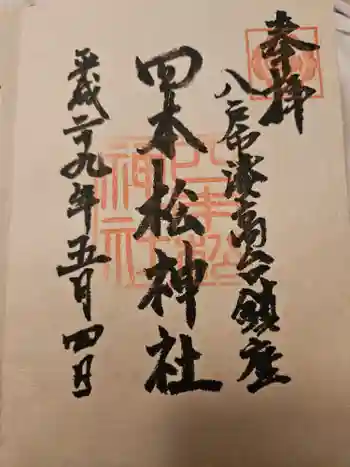 奉拝
八戸市湊高台鎮座
四本松神社
平成二十九年五月四日